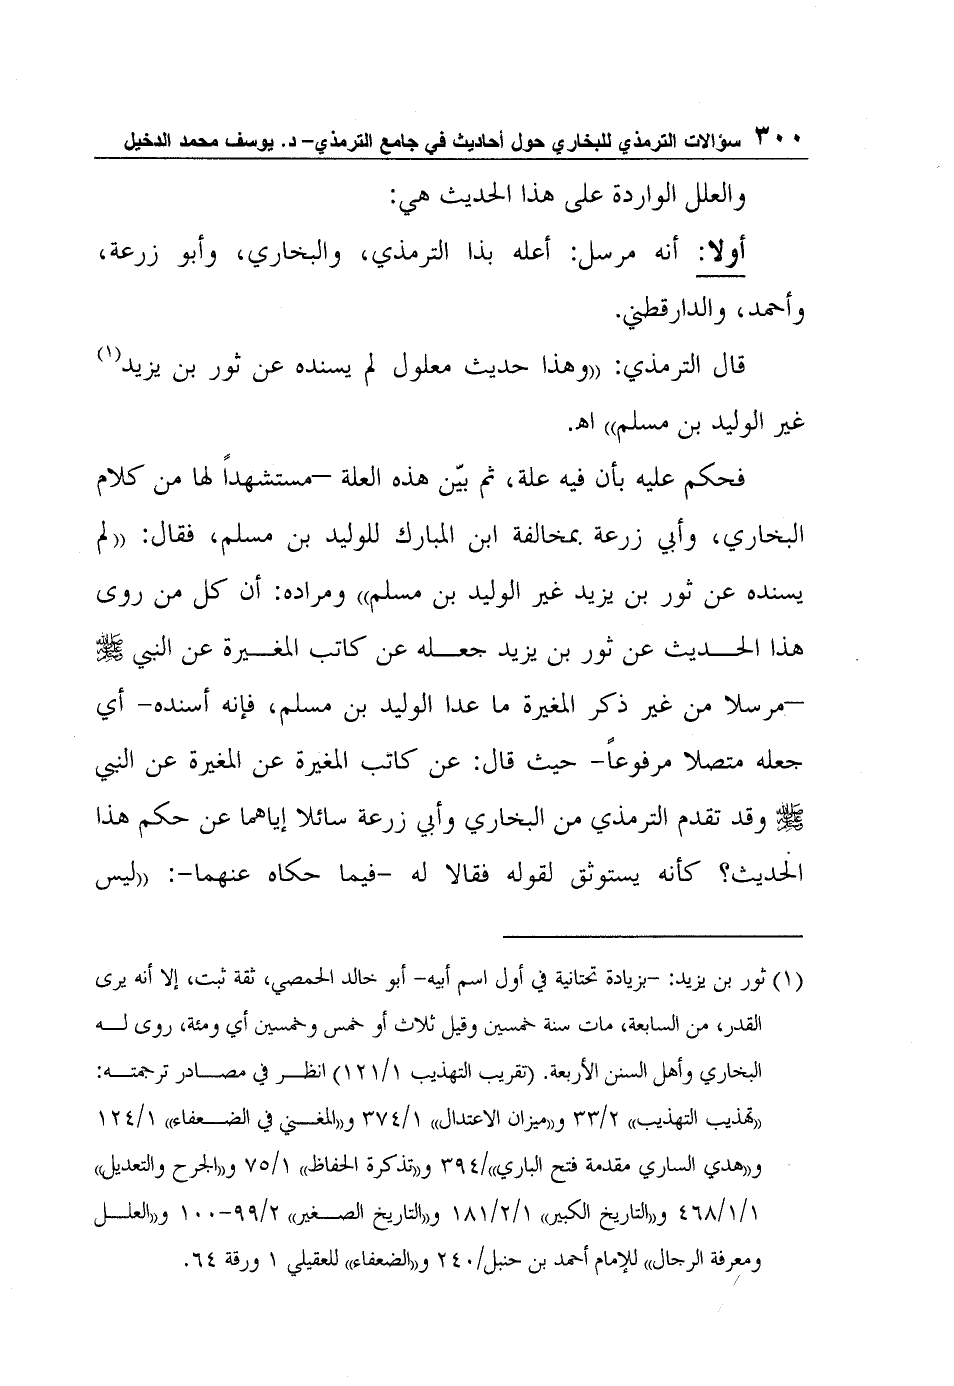 ٣٠٠ سؤالات الترمذي للبخاري حول أحاديث في جامع الترمذي- د. يوسف محمد الدخيل
والعلل الواردة على هذا الحديث هي:
أولا: أنه مرسل: أعله بذا الترمذي، والبخاري، وأبو زرعة،
وأحمد، والدارقطني.
قال الترمذي: ((وهذا حديث معلول لم يسنده عن ثور بن يزيد(١)
غير الوليد بن مسلم)) اهـ.
فحكم عليه بأن فيه علة، ثم بيّن هذه العلة –مستشهداً لها من كلام
البخاري، وأبي زرعة بمخالفة ابن المبارك للوليد بن مسلم، فقال: ((لم
يسنده عن ثور بن يزيد غير الوليد بن مسلم)) ومراده: أن كل من روى
هذا الحـــديث عن ثور بن يزيد جعـــله عن كاتب المغـــيرة عن النبي ﷺ
–مرسلا من غير ذكر المغيرة ما عدا الوليد بن مسلم، فإنه أسنده- أي
جعله متصلا مرفوعاً- حيث قال: عن كاتب المغيرة عن المغيرة عن النبي
ﷺ وقد تقدم الترمذي من البخاري وأبي زرعة سائلا إياهما عن حكم هذا
الحديث؟ كأنه يستوثق لقوله فقالا له -فيما حكاه عنهما-: ((ليس
(١) ثور بن يزيد: -بزيادة تحتانية في أول اسم أبيه- أبو خالد الحمصي، ثقة ثبت، إلا أنه يرى
القدر، من السابعة، مات سنة خمسين وقيل ثلاث أو خمس وخمسين أي ومئة، روى لـــه
البخاري وأهل السنن الأربعة. (تقريب التهذيب ١٢١/١) انظـــر في مصـــادر ترجمتـــه:
((تهذيب التهذيب)) ٣٣/٢ و((ميزان الاعتدال)) ٣٧٤/١ و((المغـــني في الضـــعفاء)) ١٢٤/١
و((هدي الساري مقدمة فتح الباري))/٣٩٤ و((تذكرة الحفاظ)) ٧٥/١ و((الجرح والتعديل))
٤٦٨/١/١ و((التاريخ الكبير)) ١٨١/٢/١ و((التاريخ الصـــغير)) ٩٩/٢-١٠٠ و((العلـــل
ومعرفة الرجال)) للإمام أحمد بن حنبل/٢٤٠ و((الضعفاء)) للعقيلي ١ ورقة ٦٤.